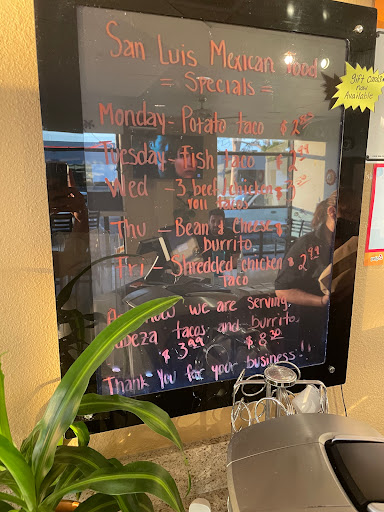 San Luis Mexican food
= Specials =
gift cards
now
Available
Monday - Potato taco $2
Tuesday - Fish taco $2.99
Wed - 3 beef/chicken $3
roll tacos
Thu - Bean & Cheese $
burrito
Fri - Shredded chicken $2.99
taco
now we are serving
tacos and burrito
$3.99 $8
Thank You for your business!!